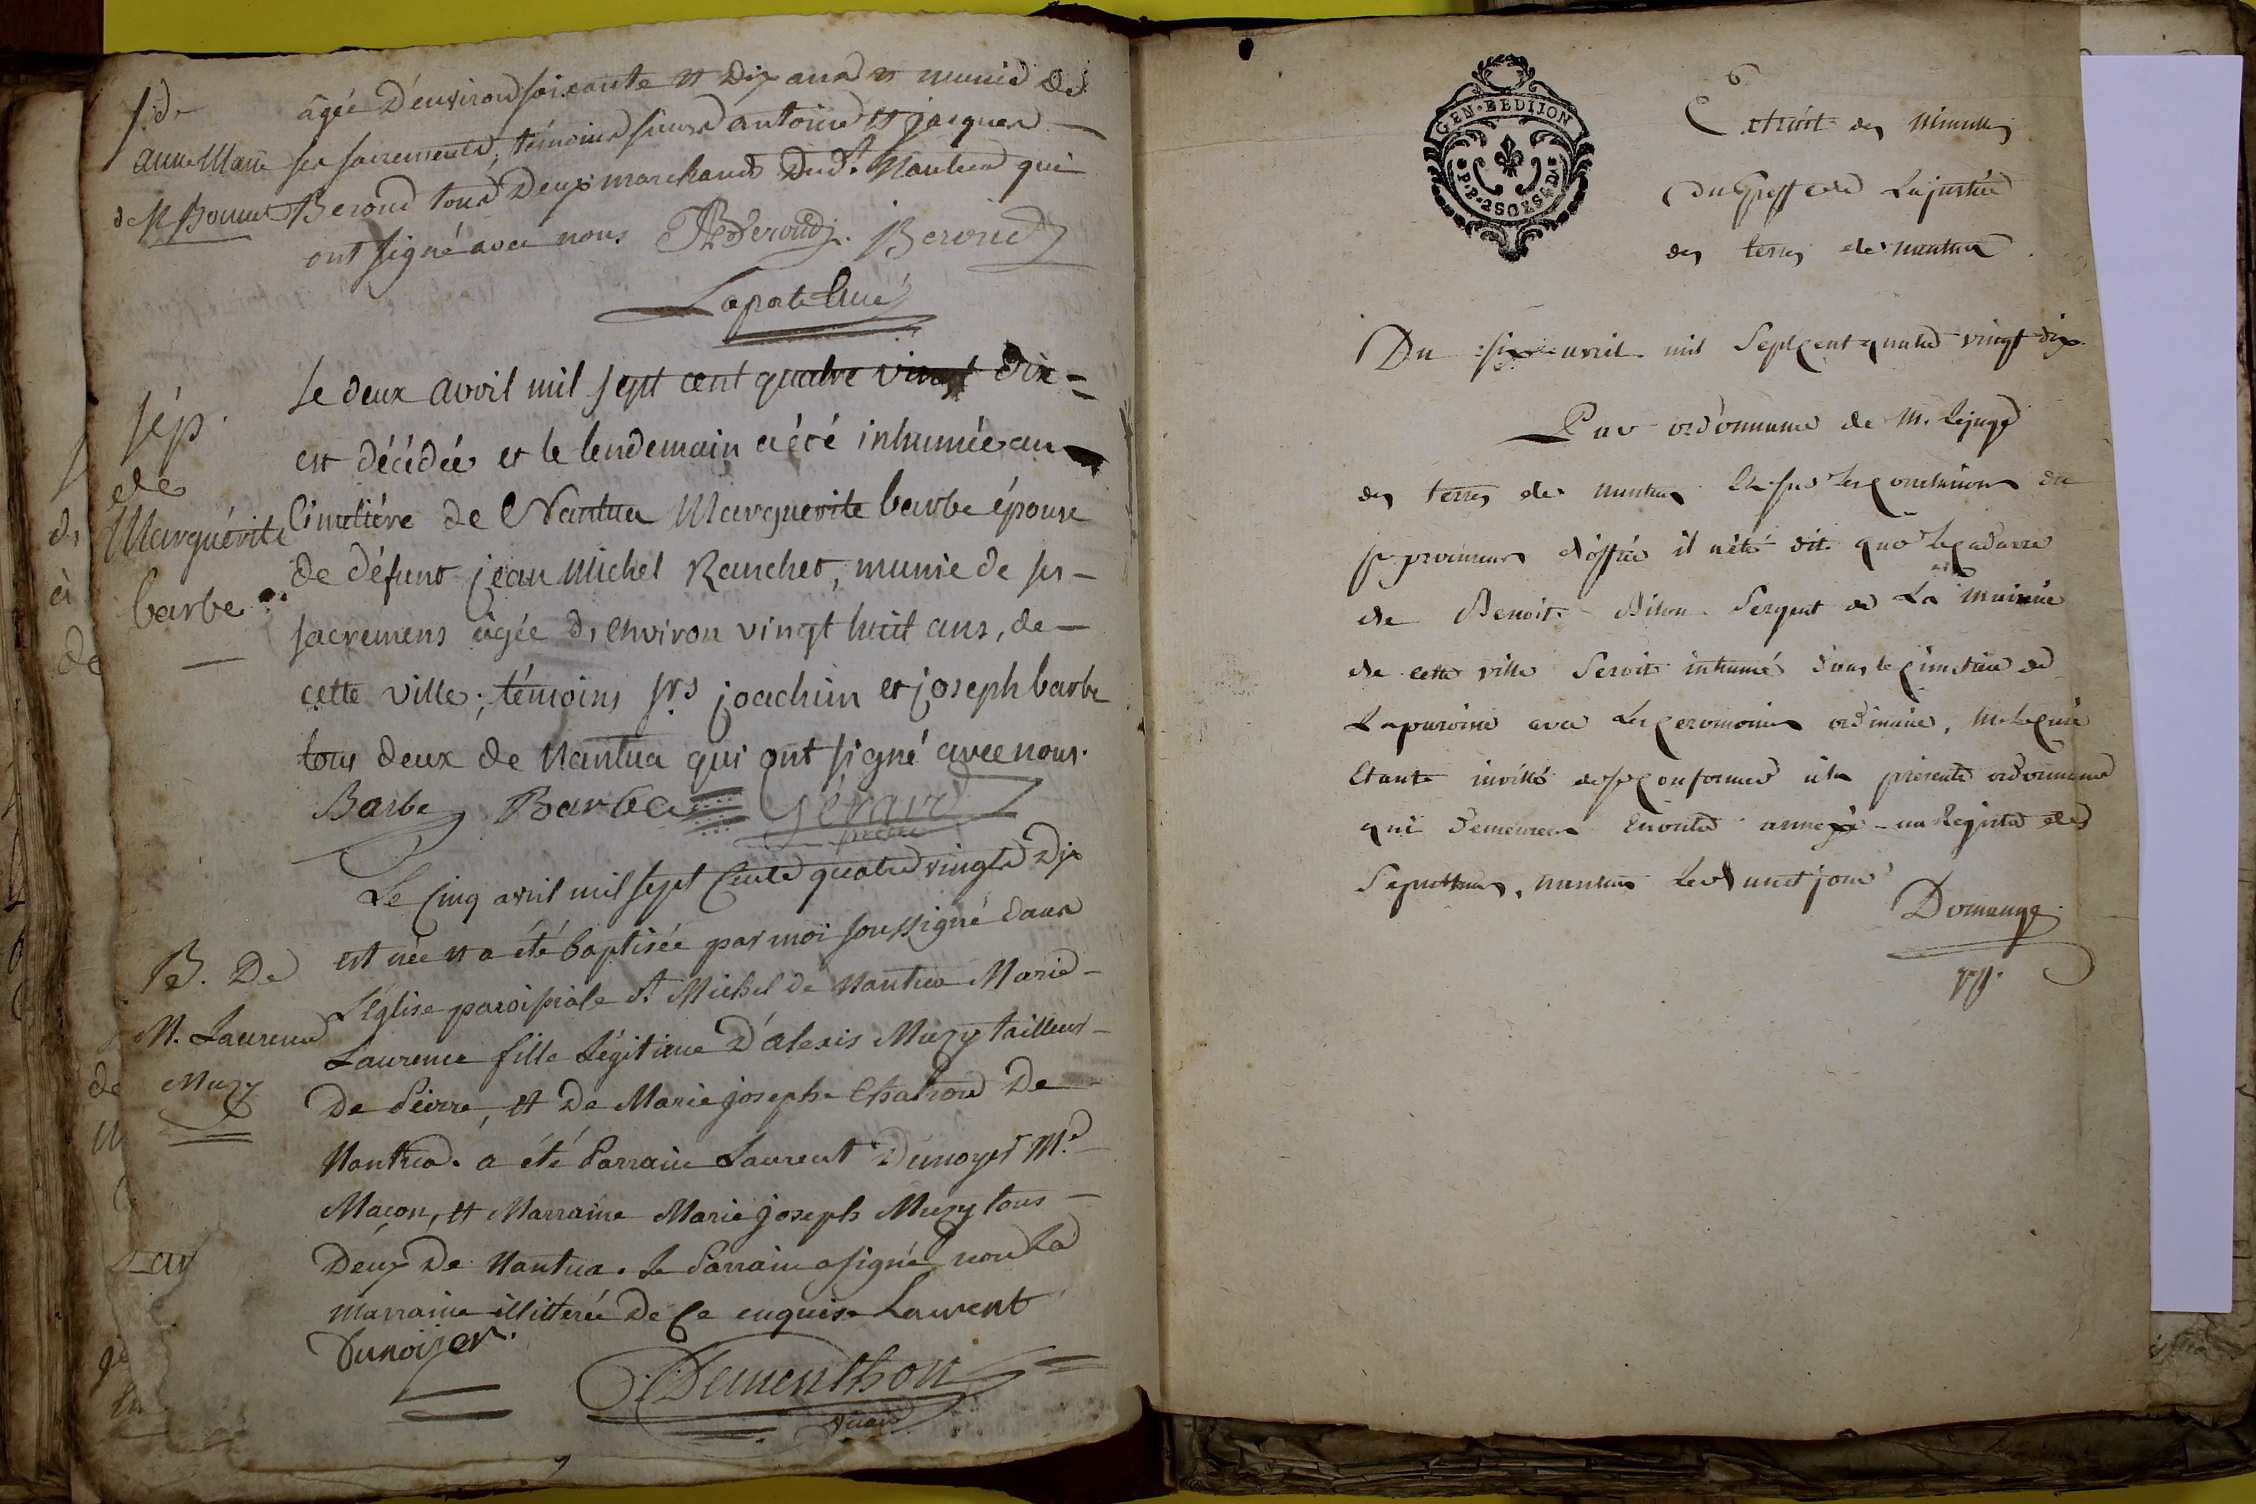 S. de
anne Marie
de St Bonnet
âgée d'environ soixante et dix ans et munie de
ses sacrements, témoins sieurs antoine et jacques
Beroud tous deux marchands dud. Nantua qui
ont signé avec nous
Beroud. j Beroud
Laporte Curé
sép.
de
Marguérite
barbe
Le deux avril mil sept cent quatre vingt dix =
est décédée et le lendemain a été inhumée au
Cimetiére de Nantua Marguerite barbe épouse
de défunt jean Michel Ranchet, munie de ses
sacremens agée d'environ vingt huit ans, de
cette ville; témoins srs joachim et joseph barbe
tous deux de Nantua qui ont signé avec nous.
Barbe Barbe Gérard
B. De
M. Laurence
Muzy
Le Cinq avril mil sept Cents quatre vingts dix
est née et a été baptisée par moi soussigné dans
L'église paroissiale St Michel de Nantua Marie
Laurence fille Légitime d'alexis Muzy tailleur
De Pierre, et De Marie joseph Chatron De
Nantua. a été Parrain Laurent Dunoyer Me
Macon, et Marraine Marie joseph Muzy tous
Deux De Nantua. Le Parrain a signé non La
marraine illitterée De Ce enquise Laurent
Dunoiyer.
Dementhon
vicaire
GEN. DE DIJON
Extrait des minutes
du Greffe de La justice
des terres de nantua
Du six avril mil Sept cent quatre vingt dix
Par ordonnance de M. Le juge
des terres de nantua et sur Les conclusions du
sr procureur d'office il a été dit que Le cadavre
de Benoit Sergent de La
de cette ville Seroit inhumé dans le cimetiere de
La paroisse avec Les ceremonies ordinaires, M. Le curé
Etant invité de se conformer à la presente ordonnance
qui demeurera Ensuite annexée au Registre des
Sepultures, nantua Led. jour
Domange
gff.